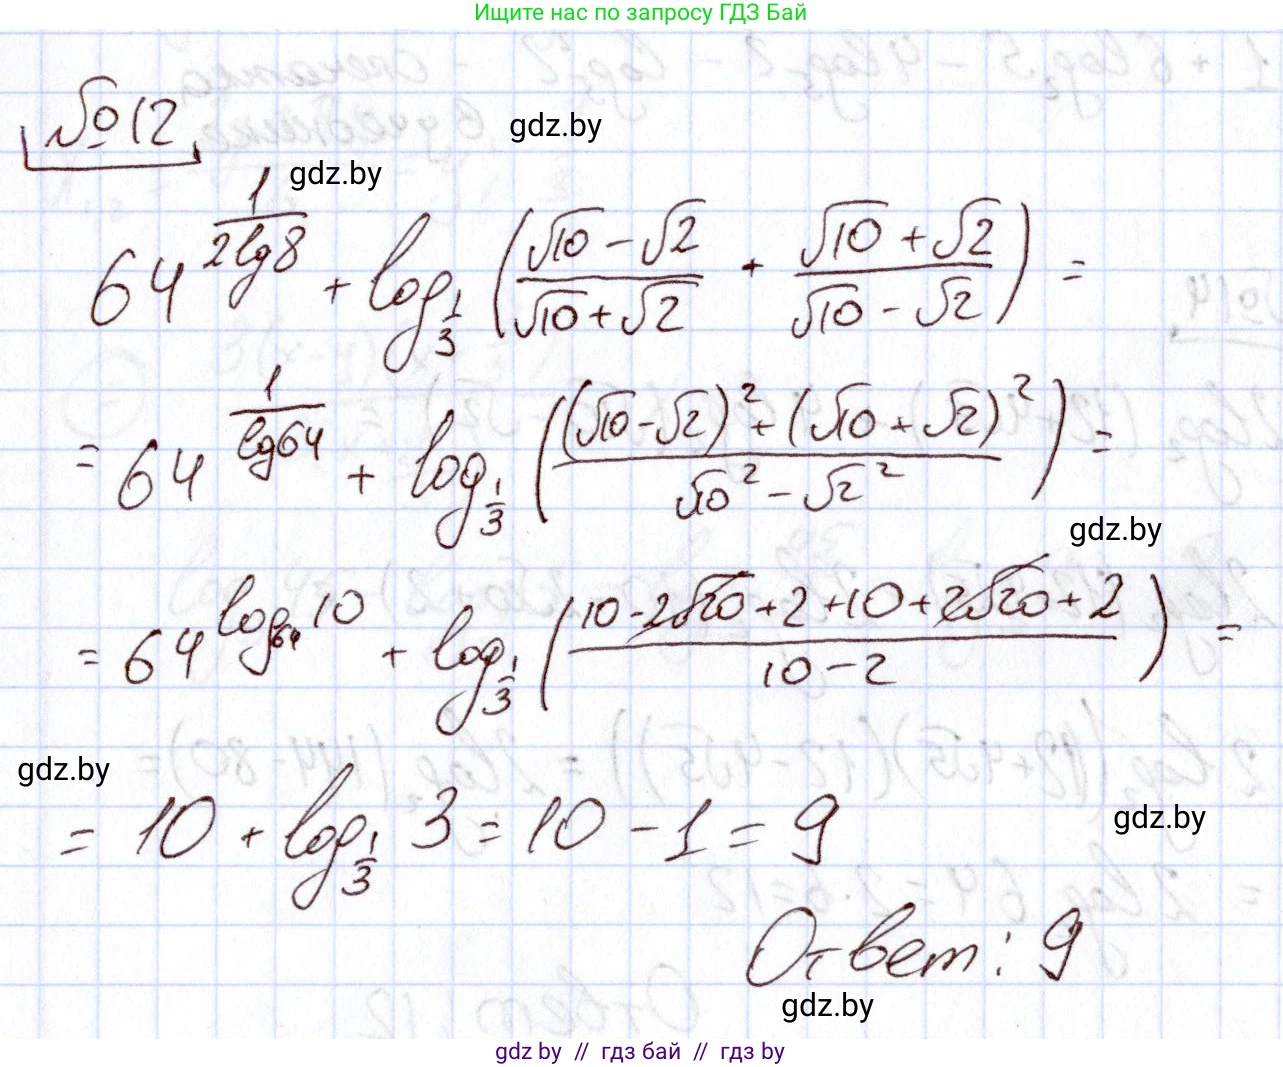 Ищите нас по запросу ГДЗ Бай
№12
gdz.by
gdz.by
64^(1/(2lg8)) + log_(1/3) ((√10 − √2)/(√10 + √2) + (√10 + √2)/(√10 − √2)) =
= 64^(1/lg64) + log_(1/3) (((√10 − √2)² + (√10 + √2)²)/(√10² − √2²)) =
gdz.by
= 64^(log_64 10) + log_(1/3) ((10 − 2√20 + 2 + 10 + 2√20 + 2)/(10 − 2)) =
gdz.by
= 10 + log_(1/3) 3 = 10 − 1 = 9
gdz.by
Ответ: 9
gdz.by
gdz by // гдз бай // gdz by